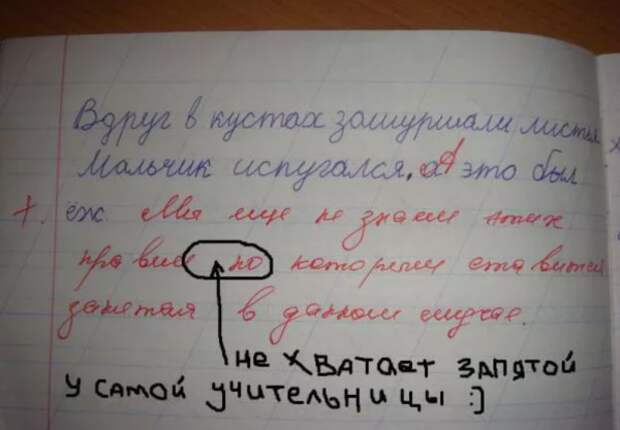 Вдруг в кустах зашуршали листья
Мальчик испугался, а А это был
еж. Мы еще не знаем этих
правил по которым ставится
запятая в данном случае.
не хватает запятой
у самой учительницы :)